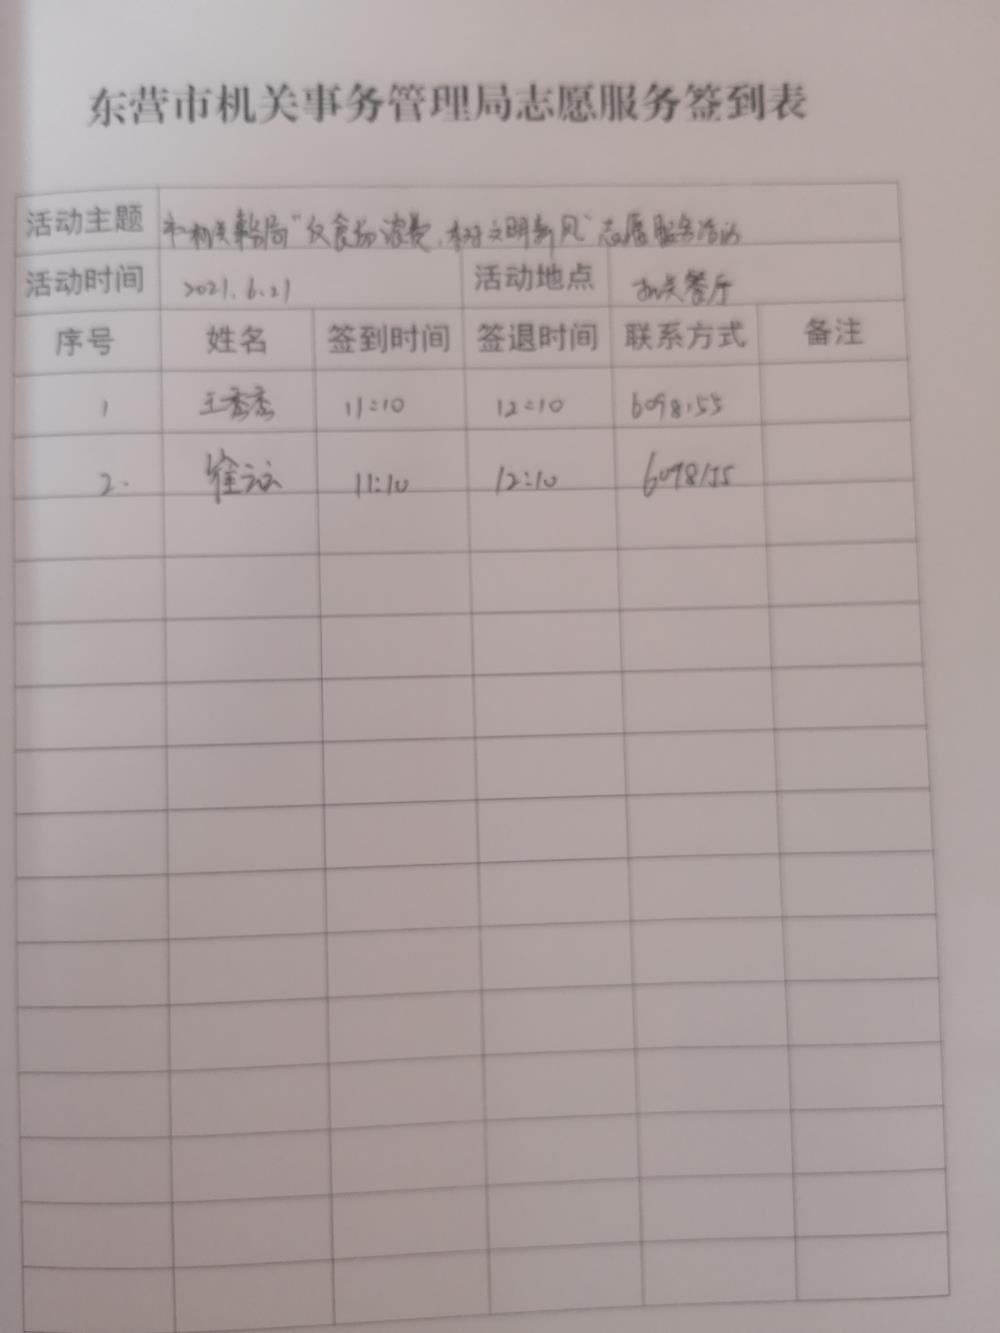 东营市机关事务管理局志愿服务签到表
活动主题 市机关事务局“反食物浪费,树文明新风”志愿服务活动
活动时间 2021.6.21 活动地点 机关餐厅
序号 姓名 签到时间 签退时间 联系方式 备注
1 王秀秀 11:10 12:10 6098155
2. 11:10 12:10 6098155